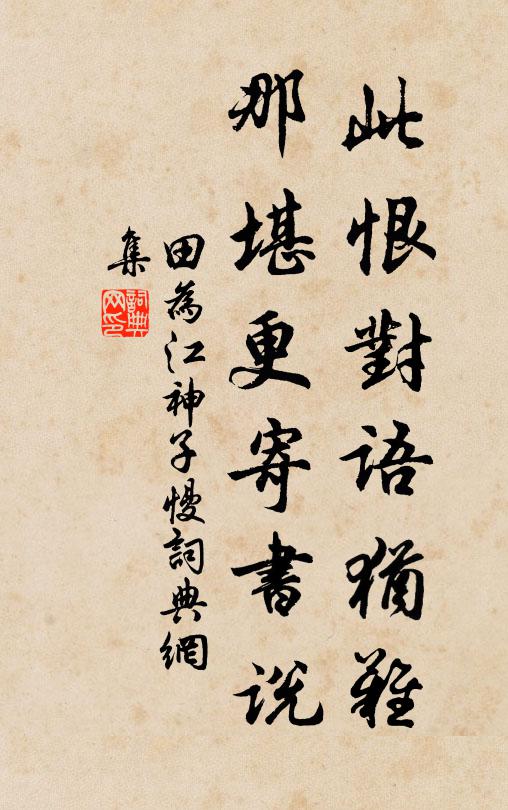 此恨對語猶難
那堪更寄書說
田為江神子慢詞典網
集
詞典
网印